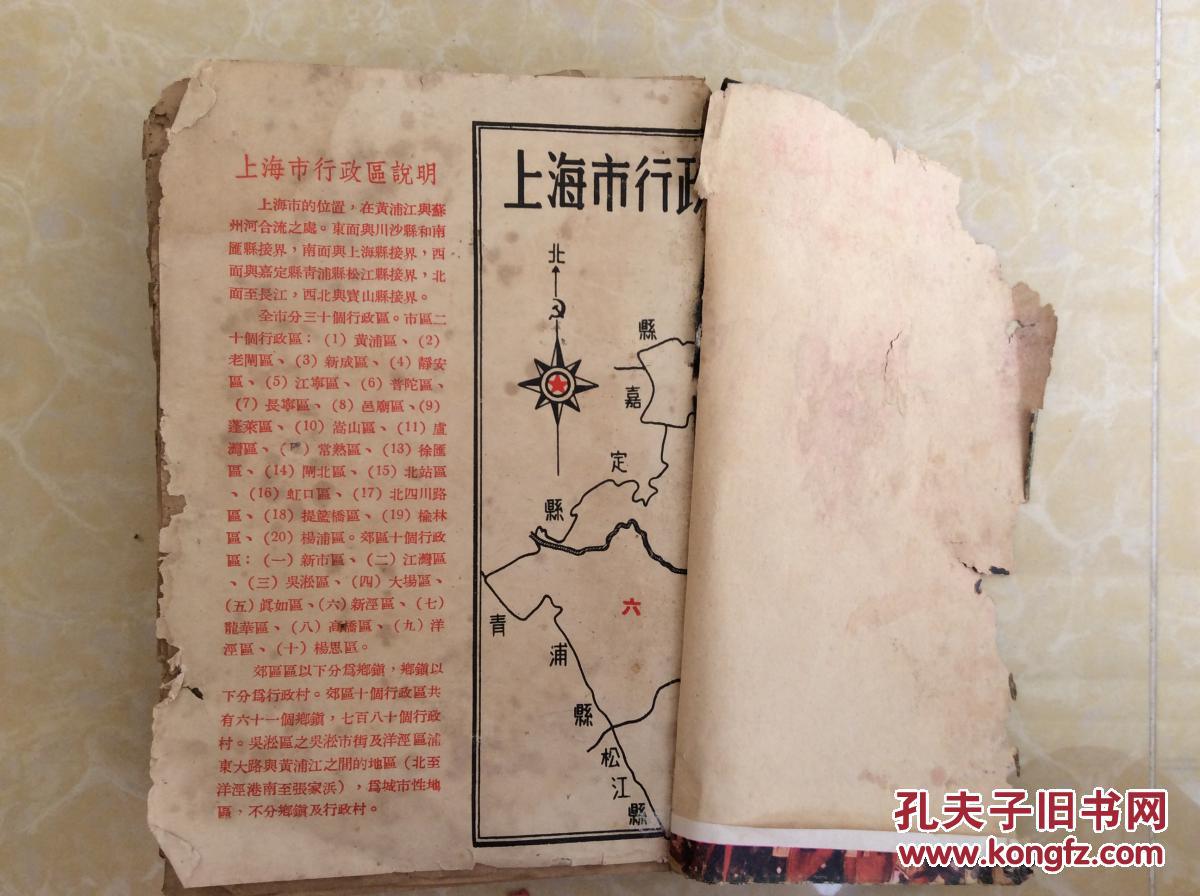 上海市行政區說明
上海市的位置，在黃浦江與蘇
州河合流之處。東面與川沙縣和南
匯縣接界，南面與上海縣接界，西
面與嘉定縣青浦縣松江縣接界，北
面至長江，西北與寶山縣接界。
全市分三十個行政區。市區二
十個行政區：（1）黃浦區、（2）
老閘區、（3）新成區、（4）靜安
區、（5）江寧區、（6）普陀區、
（7）長寧區、（8）邑廟區、（9）
蓬萊區、（10）嵩山區、（11）盧
灣區、（）常熟區、（13）徐匯
區、（14）閘北區、（15）北站區
、（16）虹口區、（17）北四川路
區、（18）提籃橋區、（19）榆林
區、（20）楊浦區。郊區十個行政
區：（一）新市區、（二）江灣區
、（三）吳淞區、（四）大場區、
（五）眞如區、（六）新涇區、（七）
龍華區、（八）高橋區、（九）洋
涇區、（十）楊思區。
郊區區以下分爲鄉鎮，鄉鎮以
下分爲行政村。郊區十個行政區共
有六十一個鄉鎮，七百八十個行政
村。吳淞區之吳淞市街及洋涇區浦
東大路與黃浦江之間的地區（北至
洋涇港南至張家浜），爲城市性地
區，不分鄉鎮及行政村。
上海市行政
北
縣
嘉
定
縣
六
青
浦
縣
松
江
縣
孔夫子旧书网
www.kongfz.com